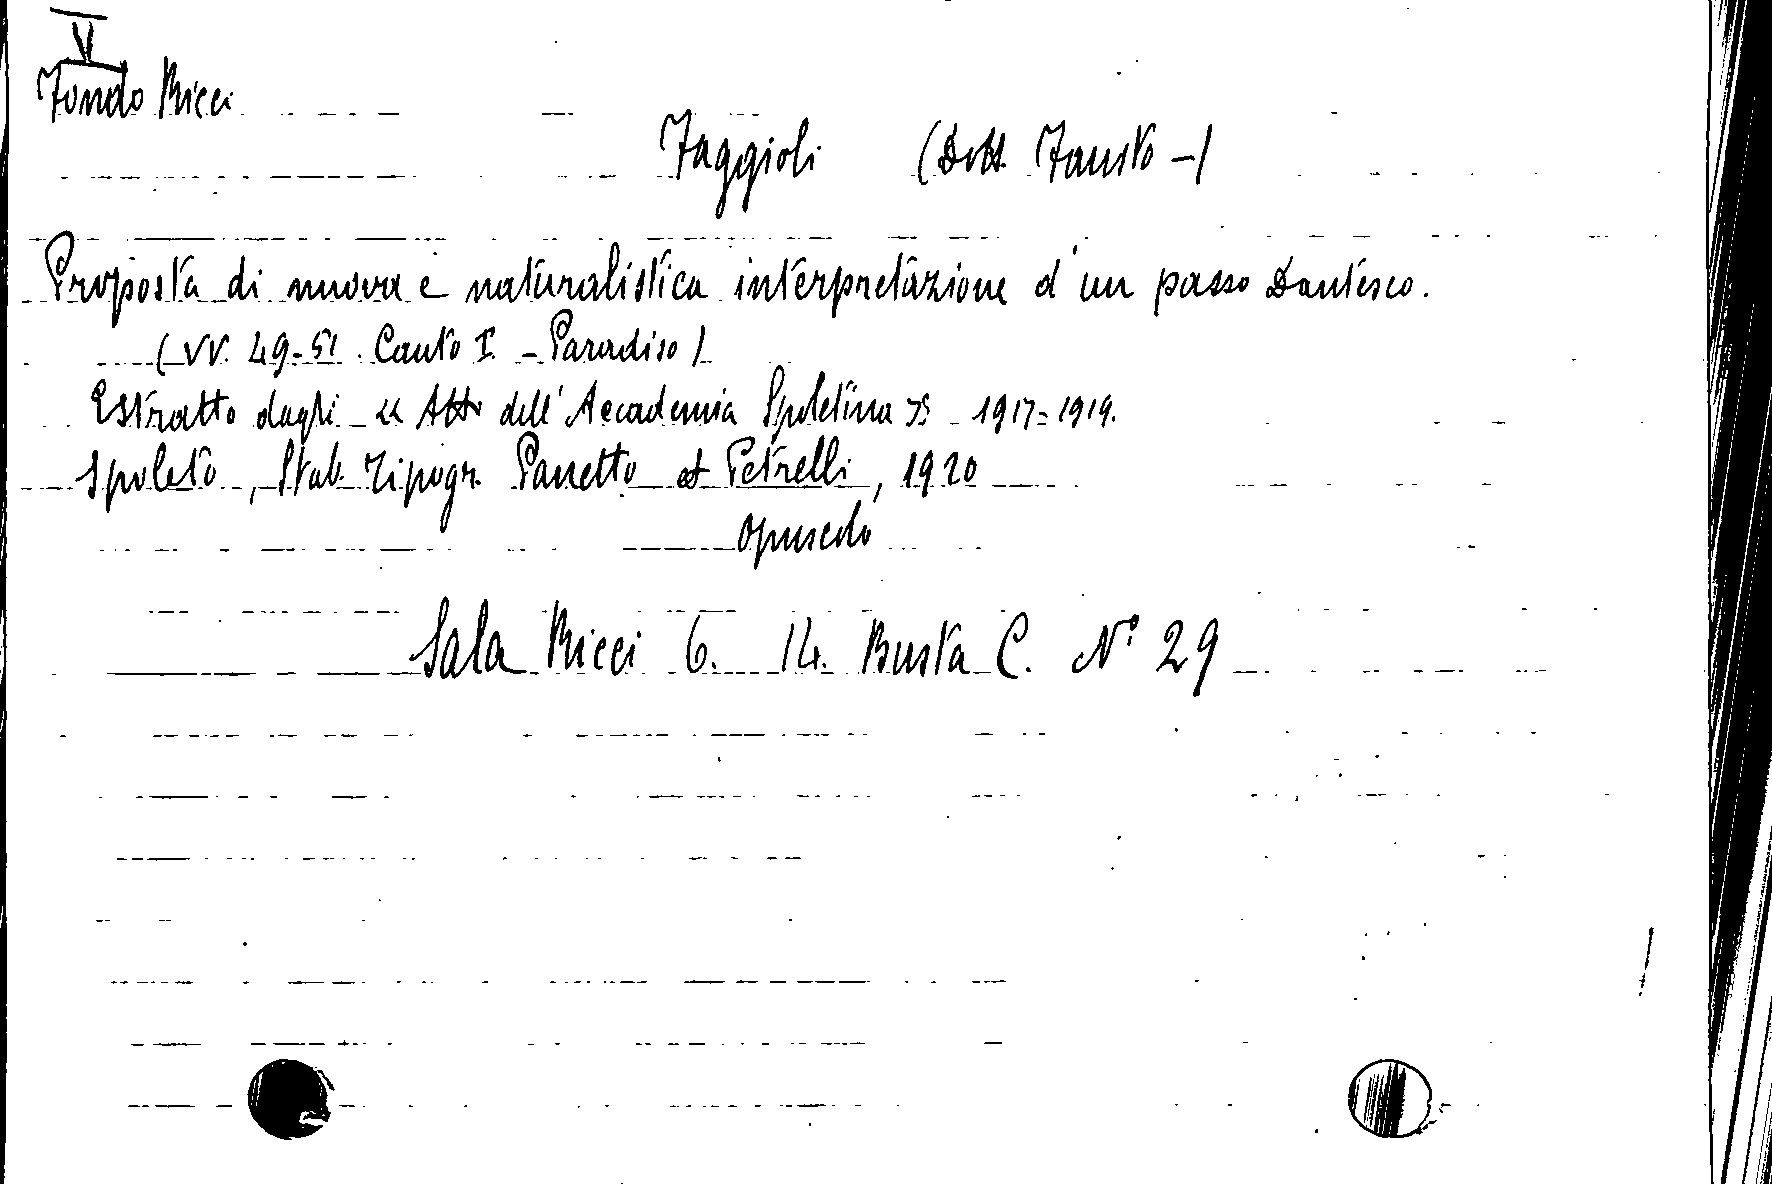 VI
Fondo Ricci
Faggioli (Dott. Fausto -)
Proposta di nuova e naturalistica interpretazione d'un passo Dantesco.
(VV. 49-51. Canto I. - Paradiso)
Estratto dagli « Atti dell'Accademia Spoletina » 1917=1919.
Spoleto, Stab. Tipogr. Panetto et Petrelli, 1920
Opuscolo
Sala Ricci 6. 14. Busta C. N° 29